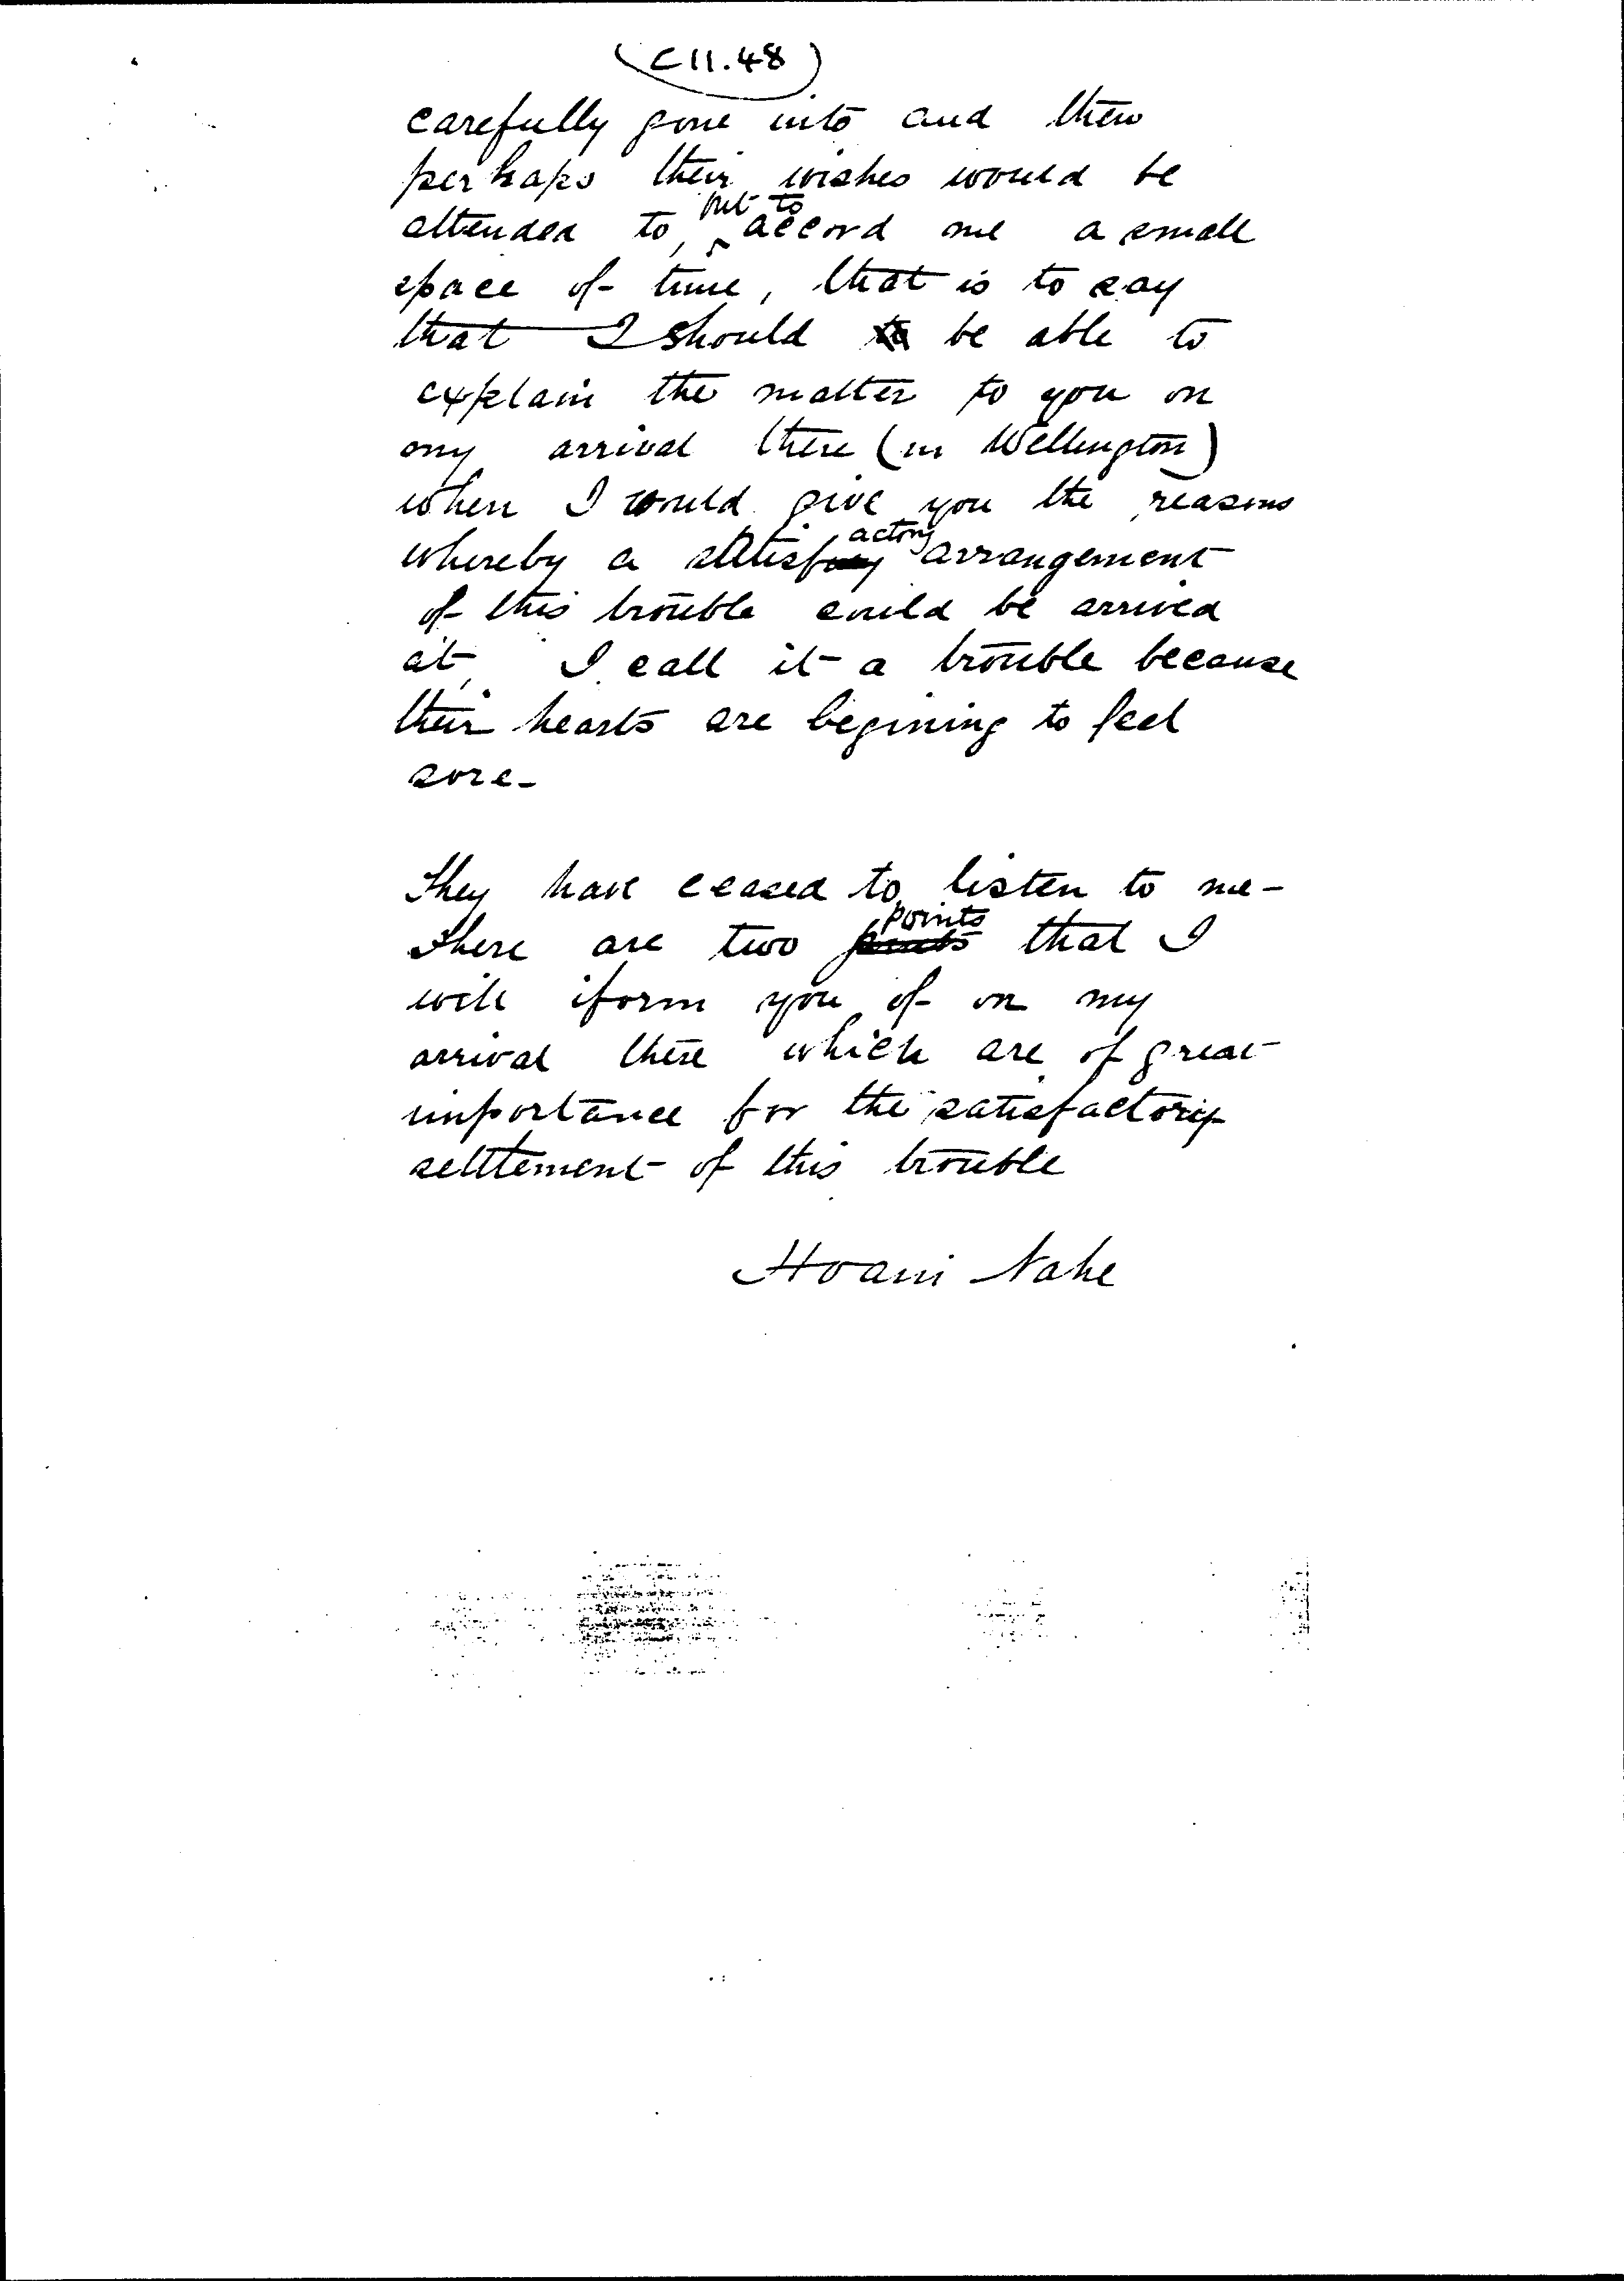 (C11.48)
carefully gone into and then
perhaps their wishes would be
attended to, but to accord me a small
space of time, that is to say
that I should be able to
explain the matter to you on
my arrival there (in Wellington)
when I would give you the reasons
whereby a satisfactory arrangement
of this trouble could be arrived
at, I call it a trouble because
their hearts are begining to feel
sore-
They have ceased to listen to me-
There are two points that I
will iform you of on my
arrival there which are of great
importance for the satisfactory
settlement of this trouble
Hoani Nahe